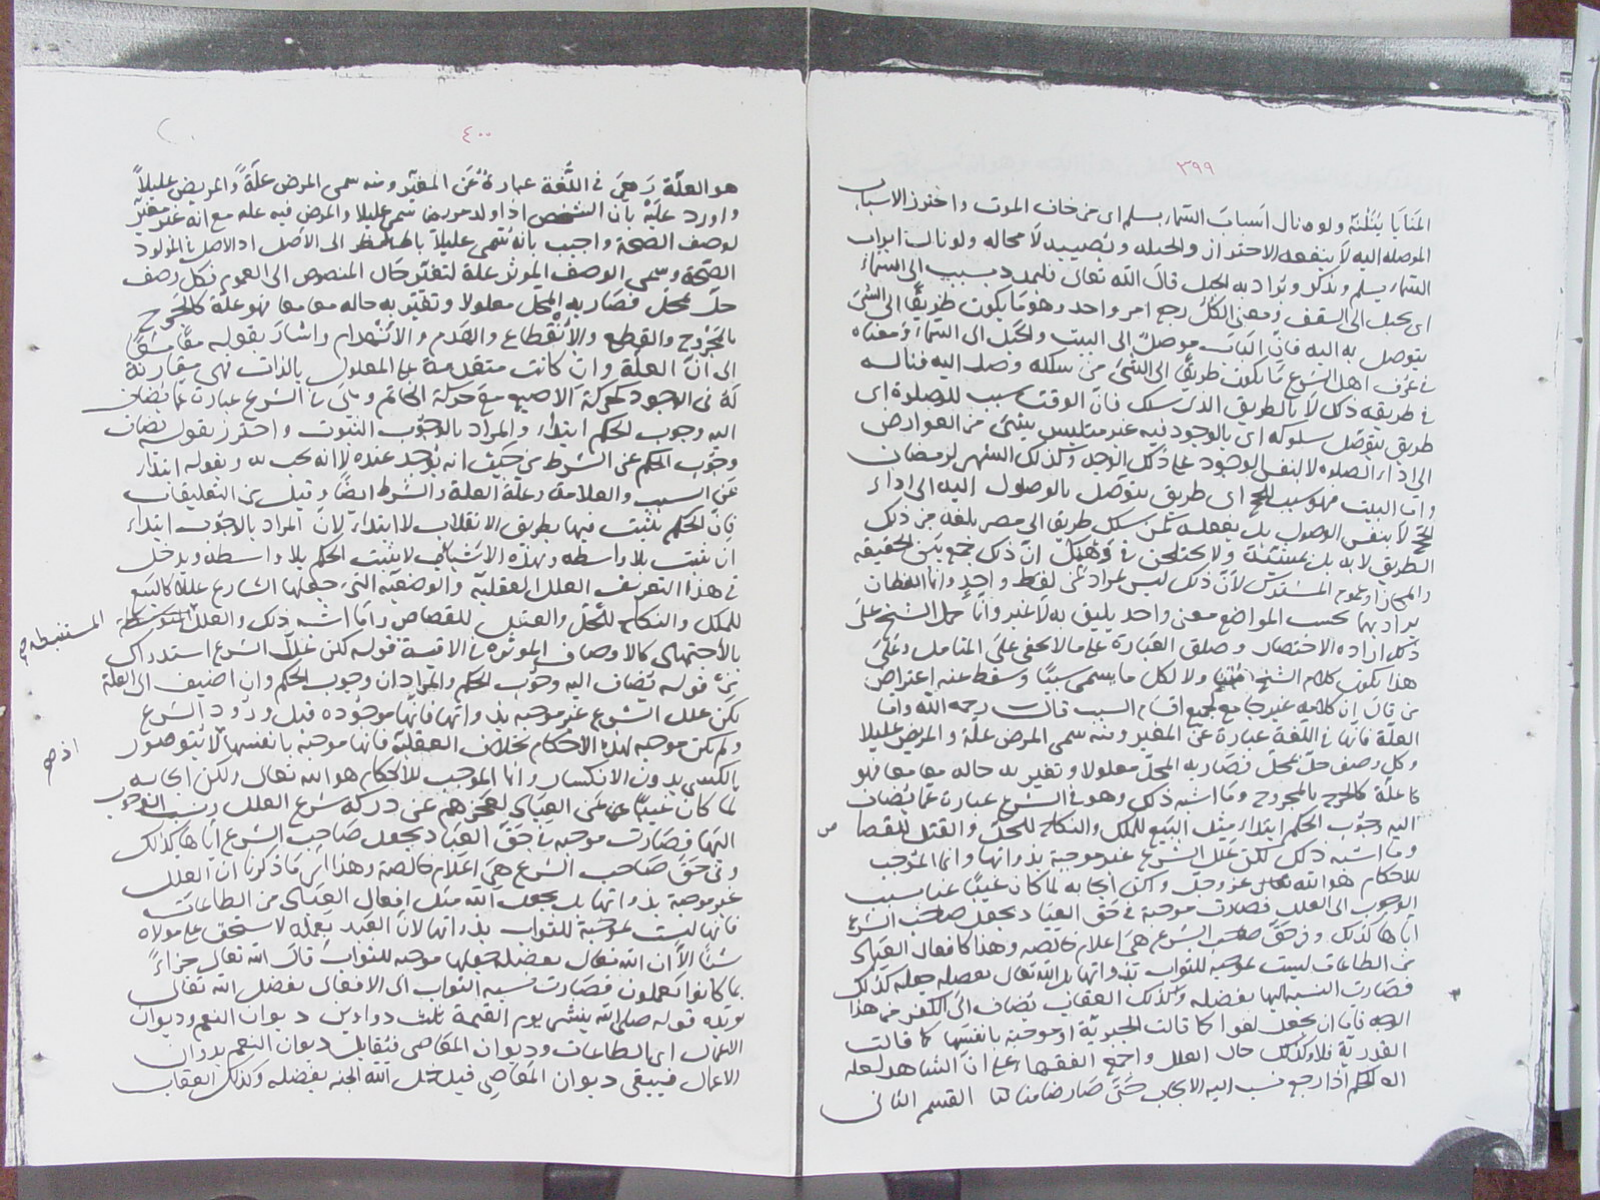 ٣٩٩
المنايا ينلنه ولو نال اسباب السماء بسلم اى من خاف الموت واحترز الاسباب
الموصله اليه لا ينفعه الاحتراز والحيله وتصيبه لا محاله ولو نال ابواب
السماء بسلم ويذكر ويراد به الحبل قال الله تعالى فليمدد بسبب الى السماء
اى بحبل الى السقف ومعنى الكل رجع امر واحد وهو ما يكون طريقا الى الشئ
يتوصل به اليه فان الباب موصل الى البيت والحبل الى السماء ومعناه
فى عرف اهل الشرع ما يكون طريقا الى الشئ من سلكه وصل اليه فناله
فى طريقه ذلك لا بالطريق الذى سلك فان الوقت سبب للصلوة اى
طريق يتوصل سلوكه اى بالوجود فيه غير متلبس بشئ من العوارض
الى اداء الصلوه لا بنفس الوجود على ذلك الوجه وكذلك الشهر لرمضان
واما البيت فهو سبب للحج اى طريق يتوصل بالوصول اليه الى اداء
الحج لا بنفس الوصول بل بفعله كمن سلك طريقا الى مصر بلغه من ذلك
الطريق لا به بل بمشيه ولا يختلجن فى وهمك ان ذلك جمع بين الحقيقه
والمجاز او عموم المشترك لان ذلك ليس بمراد من لفظ واحد وانما اللفظان
يراد بهما بحسب المواضع معنى واحد يليق به لا غير وانما حمل الشيخ على
ذلك اراده الاختصار وصلق العبارة على ما لا يخفى على المتامل وعلى
هذا يكون كلام الشيخ ولا لكل ما يسمى سببا وسقط عنه اعتراض
من قال ان كلامه غير جامع لجميع اقسام السبب قال رحمه الله واما
العلة فانها فى اللغة عبارة عن المغير ومنه سمى المرض علة والمريض عليلا
وكل وصف حل بمحل فصار به المحل معلولا وتغير به حاله معا معا فهو
علة كالجرح بالمجروح وما اشبه ذلك وهو فى الشرع عبارة عما يضاف
اليه وجوب الحكم ابتداء مثل البيع للملك والنكاح للحل والقتل للقصا
ص
وما اشبه ذلك لكن علل الشرع غير موجبة بذواتها وانما الموجب
للاحكام هو الله عز وجل ولكن ايجابه لما كان غيبا عنا نسب
الوجوب الى العلل فصارت موجبة فى حق العباد بجعل صاحب الشرع
اياها كذلك وفى حق صاحب الشرع هى اعلام خالصه وهذا كافعال العباد
من الطاعات ليست بموجبة للثواب بذواتها بل الله تعالى بفضله جعله كذلك
فصارت النسبه اليها بفضله وكذلك العقاب يضاف الى الكفر من هذا
الوجه فاما ان يجعل لغوا كما قالت الجبرية او موجبة بانفسها كما قالت
القدرية فلا وكذلك حال العلل واجمع الفقهاء على ان الشاهد لعله
الحكم اذا رجع نسب اليه الايجاب حتى صار ضامنا لنا القسم الثانى
٤٠٠
هو العلة وهى فى اللغة عبارة عن المغير ومنه سمى المرض علة والمريض عليلا
واورد عليه بان الشخص اذا ولد مريضا سمى عليلا والمرض فيه عله مع انه غير مغير
لوصف الصحة واجيب بانه يسمى عليلا بالنظر الى الاصل اذ الاصل فى المولود
الصحة وسمى الوصف الموثر علة لتغير حال المنصوص الى العموم فكل وصف
حل بمحل فصار به المحل معلولا وتغير به حاله معا معا فهو علة كالجرح
بالمجروح والقطع والانقطاع والهدم والانهدام واشار بقوله معا معا
الى ان العلة وان كانت متقدمة على المعلول بالذات فهى مقارنة
له فى الوجود كحركة الاصبع مع حركة الخاتم وهى فى الشرع عبارة عما يضاف
اليه وجوب الحكم ابتداء والمراد بالوجوب الثبوت واحترز بقوله يضاف
وجوب الحكم عن الشرط من حيث انه يوجد عنده لا انه يجب به وبقوله ابتداء
عن السبب والعلامة وعلة العلة والشرط ايضا وقيل عن التعليقات
فان الحكم يثبت فيها بطريق الانقلاب لا ابتداء لان المراد بالوجوب ابتداء
ان يثبت بلا واسطه وبهذه الاشياء لا يثبت الحكم بلا واسطه ويدخل
فى هذا التعريف العلل العقلية والوضعية التى جعلها الشارع عللا كالبيع
للملك والنكاح للحل والقتل للقصاص وما اشبه ذلك والعلل
المستنبطه صح
بالاجتهاد كالاوصاف الموثره فى الاقيسة قوله لكن علل الشرع استدراك
من قوله يضاف اليه وجوب الحكم والمراد ان وجوب الحكم وان اضيف الى العلة
لكن علل الشرع غير موجبه بذواتها فانها موجوده قبل ورود الشرع
ولم تكن موجبه لهذه الاحكام بخلاف العقلية فانها موجبة بانفسها لا يتصور
اذ صح
بالكسر بدون الانكسار وانما الموجب للاحكام هو الله تعالى ولكن ايجابه
لما كان غيبا عن العباد لعجزهم عن دركه شرع العلل ونسب الوجوب
اليها فصارت موجبه فى حق العباد بجعل صاحب الشرع اياها كذلك
وفى حق صاحب الشرع هى اعلام خالصه وهذا اى ما ذكرنا ان العلل
غير موجبة بذواتها بل بجعل الله مثل افعال العباد من الطاعات
فانها ليست بموجبة للثواب بذواتها لان العبد بعمله لا يستحق على مولاه
شيئا الا ان الله تعالى بفضله جعلها موجبه للثواب قال الله تعالى جزاء
بما كانوا يعملون فصارت نسبة الثواب الى الافعال بفضل الله تعالى
يويده قوله صلى الله ينشر يوم القيمة ثلث دواوين ديوان النعم وديوان
الاعمال اى الطاعات وديوان المعاصى فيقابل ديوان النعم بديوان
الاعمال فيبقى ديوان المعاصى فيدخل الله الجنه بفضله وكذلك العقاب